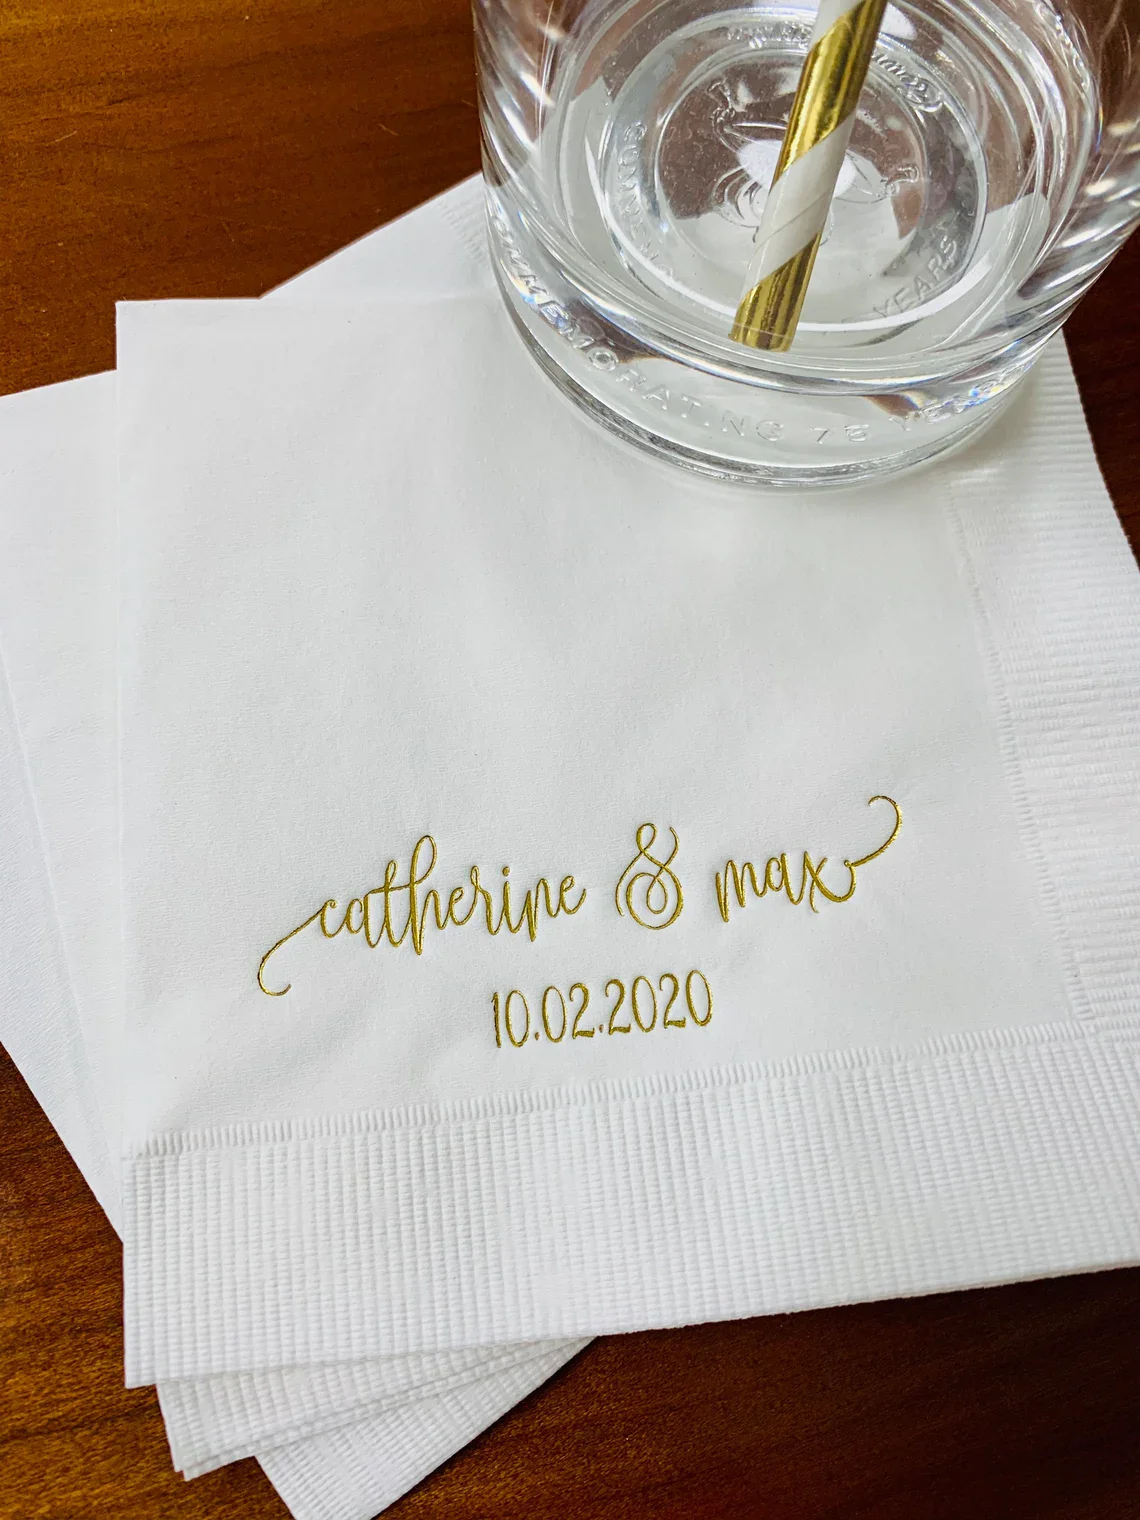 COMMEMORATING 75 YEARS
YEARS
catherine & max
10.02.2020